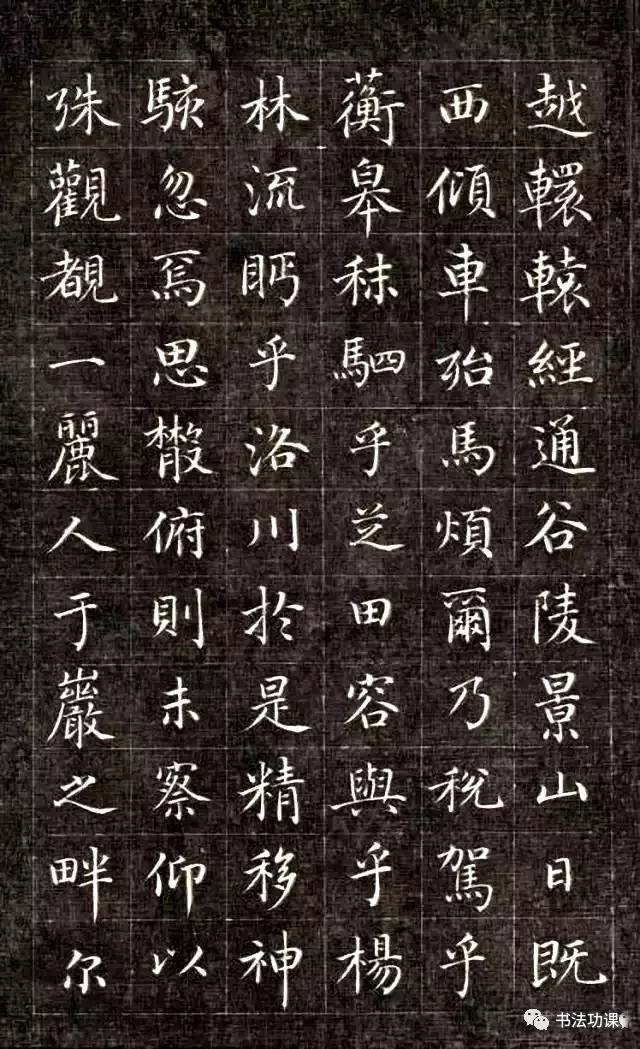 越轘轅經通谷陵景山日既
西傾車殆馬煩爾乃稅駕乎
蘅皋秣駟乎芝田容與乎楊
林流眄乎洛川於是精移神
駭忽焉思散俯則未察仰以
殊觀覩一麗人于巖之畔尔
书法功课